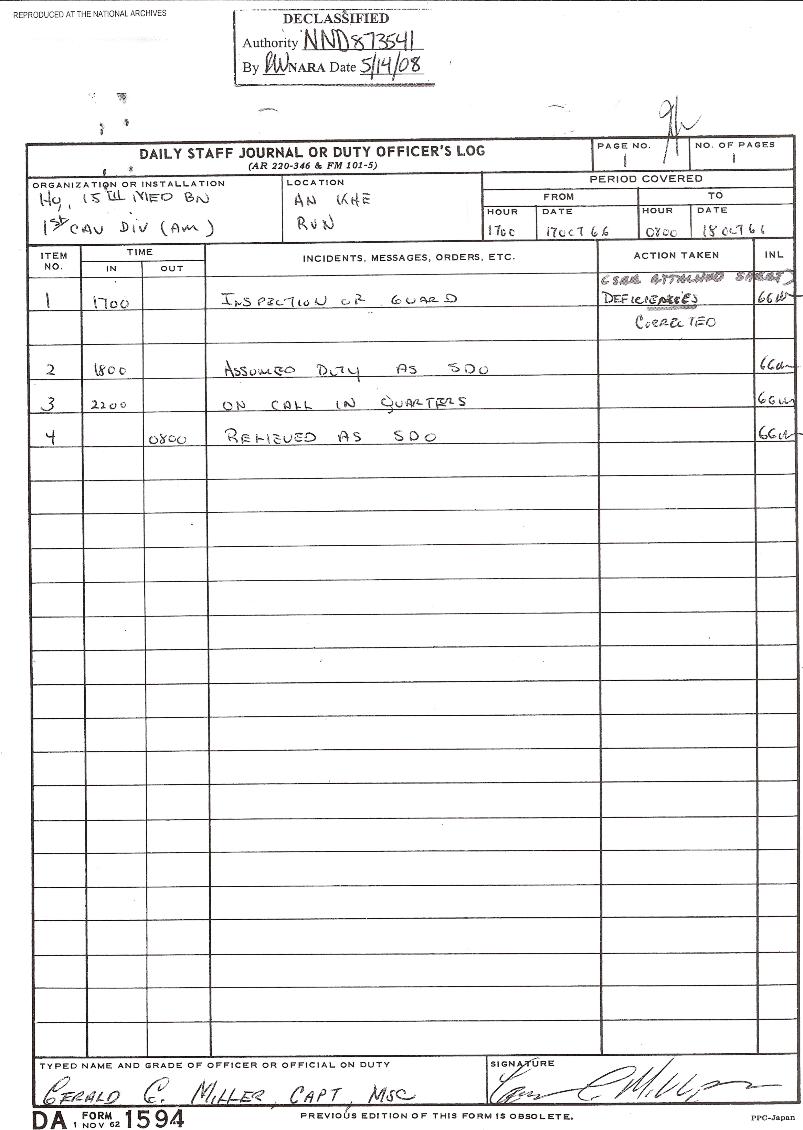 REPRODUCED AT THE NATIONAL ARCHIVES
DECLASSIFIED
Authority NND873541
By NARA Date 5/14/08
DAILY STAFF JOURNAL OR DUTY OFFICER'S LOG
(AR 220-346 & FM 101-5)
PAGE NO.
1
NO. OF PAGES
1
ORGANIZATION OR INSTALLATION
Hq, 15TH MED BN
1st CAV DIV (AM)
LOCATION
AN KHE
RVN
PERIOD COVERED
FROM
TO
HOUR
DATE
HOUR
DATE
1700
17 OCT 66
0800
18 OCT 66
ITEM NO.
TIME
IN
OUT
INCIDENTS, MESSAGES, ORDERS, ETC.
ACTION TAKEN
INL
(SEE ATTACHED SHEET)
1 1700 INSPECTION OF GUARD DEFICIENCIES
CORRECTED
2 1800 ASSUMED DUTY AS SDO
3 2200 ON CALL IN QUARTERS
4 0800 RELIEVED AS SDO
TYPED NAME AND GRADE OF OFFICER OR OFFICIAL ON DUTY
GERALD C. MILLER, CAPT, MSC
SIGNATURE
DA FORM 1594
1 NOV 62
PREVIOUS EDITION OF THIS FORM IS OBSOLETE.
PPC-Japan